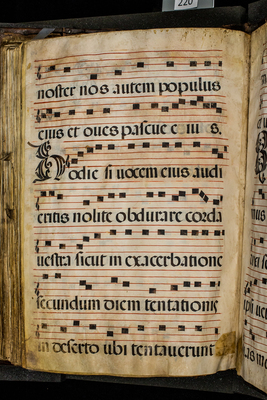 220
noster nos autem populus
eius et oues pascue e iu s,
Hodie si uocem eius audi
eritis nolite obdurare corda
uestra sicut in exacerbatione
secundum diem tentationis
in deserto ubi tentauerunt